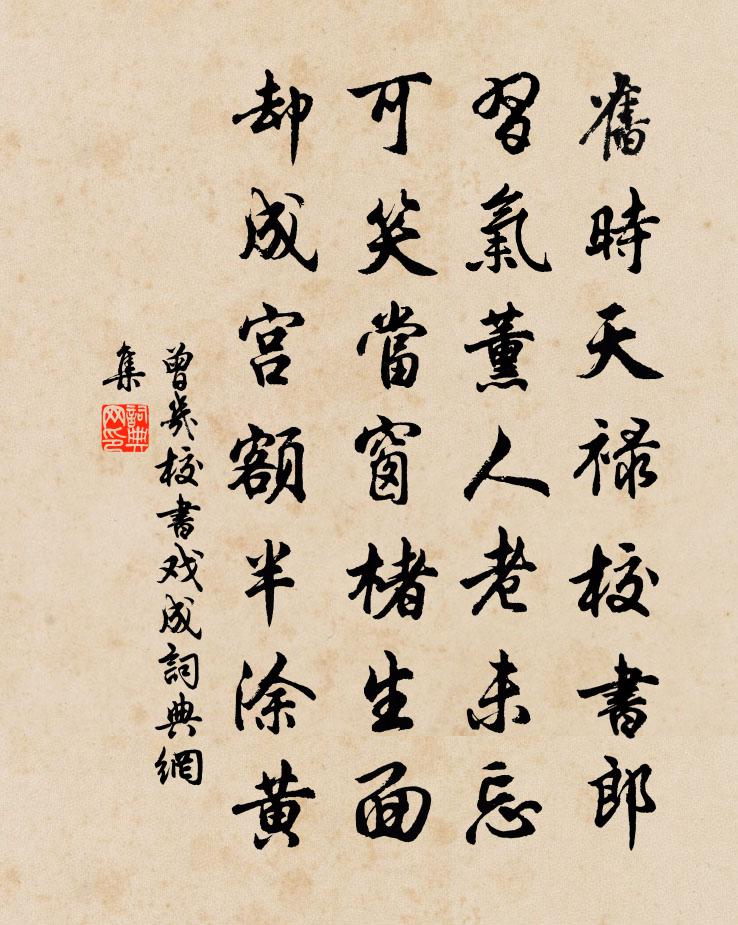 舊時天祿校書郎
習氣薰人老未忘
可笑當窗楮生面
却成宮額半涂黄
曾幾校書戏成詞典網
集
詞典网印